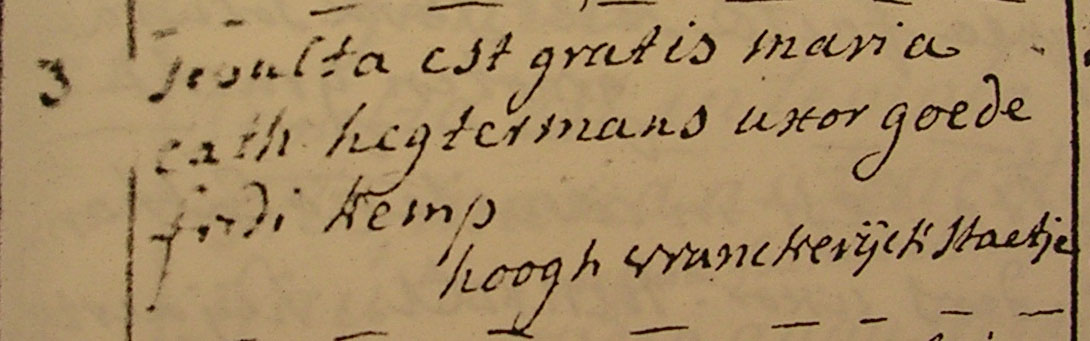 3 sepulta est gratis maria
cath hegtermans uxor goede
fridi kemp
hoogh vranckerijck staetje